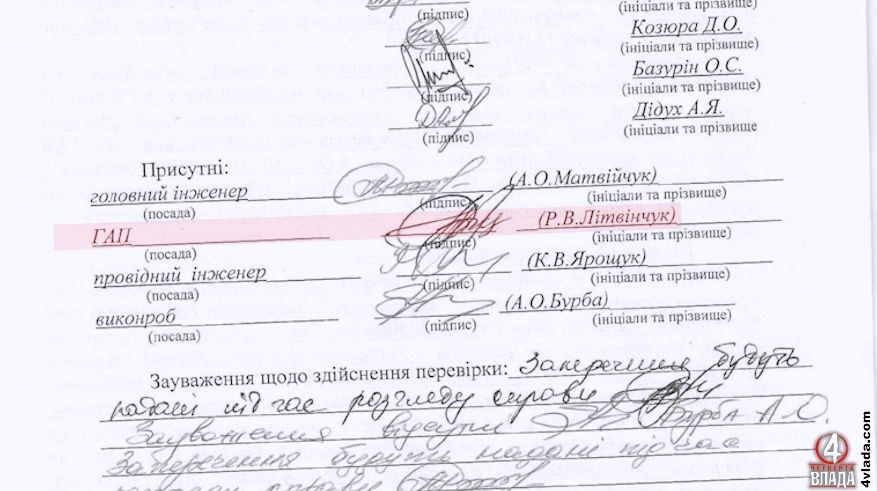 (підпис) (ініціали та прізвище)
Козюра Д.О.
(підпис) (ініціали та прізвище)
Базурін О.С.
(підпис) (ініціали та прізвище)
Дідух А.Я.
(підпис) (ініціали та прізвище
Присутні:
головний інженер (А.О.Матвійчук)
(посада) (підпис) (ініціали та прізвище)
ГАП (Р.В.Літвінчук)
(посада) (підпис) (ініціали та прізвище)
провідний інженер (К.В.Ярощук)
(посада) (підпис) (ініціали та прізвище)
виконроб (А.О.Бурба)
(посада) (підпис) (ініціали та прізвище)
Зауваження щодо здійснення перевірки: Заперечення будуть
надані під час розгляду справи
Зауваження відсутні Бурба А.О.
Заперечення будуть надані під час
справи
4 ЧЕТВЕРТА ВЛАДА
4vlada.com